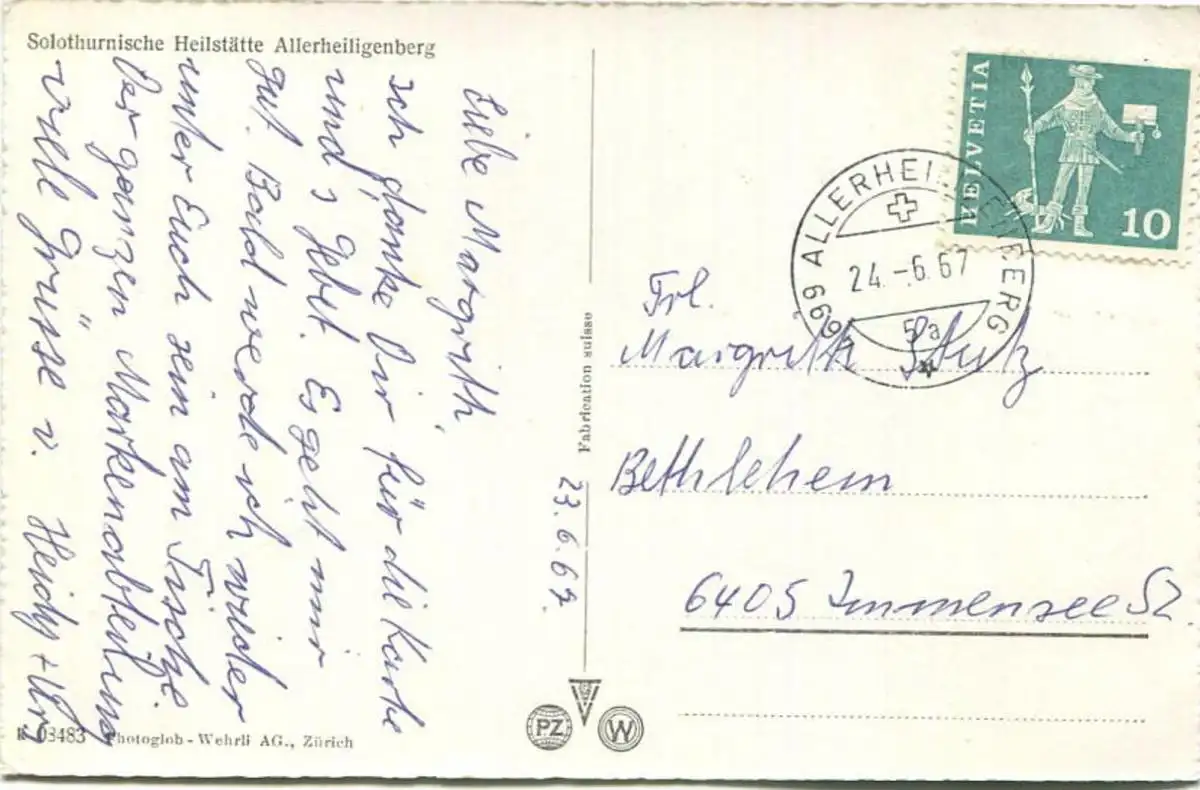 Solothurnische Heilstätte Allerheiligenberg
Liebe Margrith,
ich danke Dir für die Karte
und s Gebet. Es geht mir
gut. Bald werde ich wieder
unter Euch sein am Tische
Der ganzen Markenabteilung
viele Grüsse v. Heidy +
23.6.67.
Fabrication suisse
HELVETIA
10
699 ALLERHEILIGENBERG
24.-6.67
5a
Frl.
Margrith Stutz
Bethlehem
6405 Immensee SZ
PZ
W
K 08483 Photoglob-Wehrli AG., Zürich